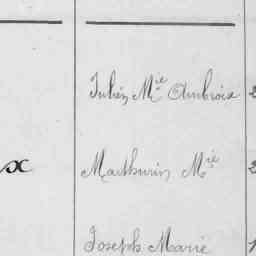 Julien Mie Ambroix
x Mathurin Mie
Joseph Marie